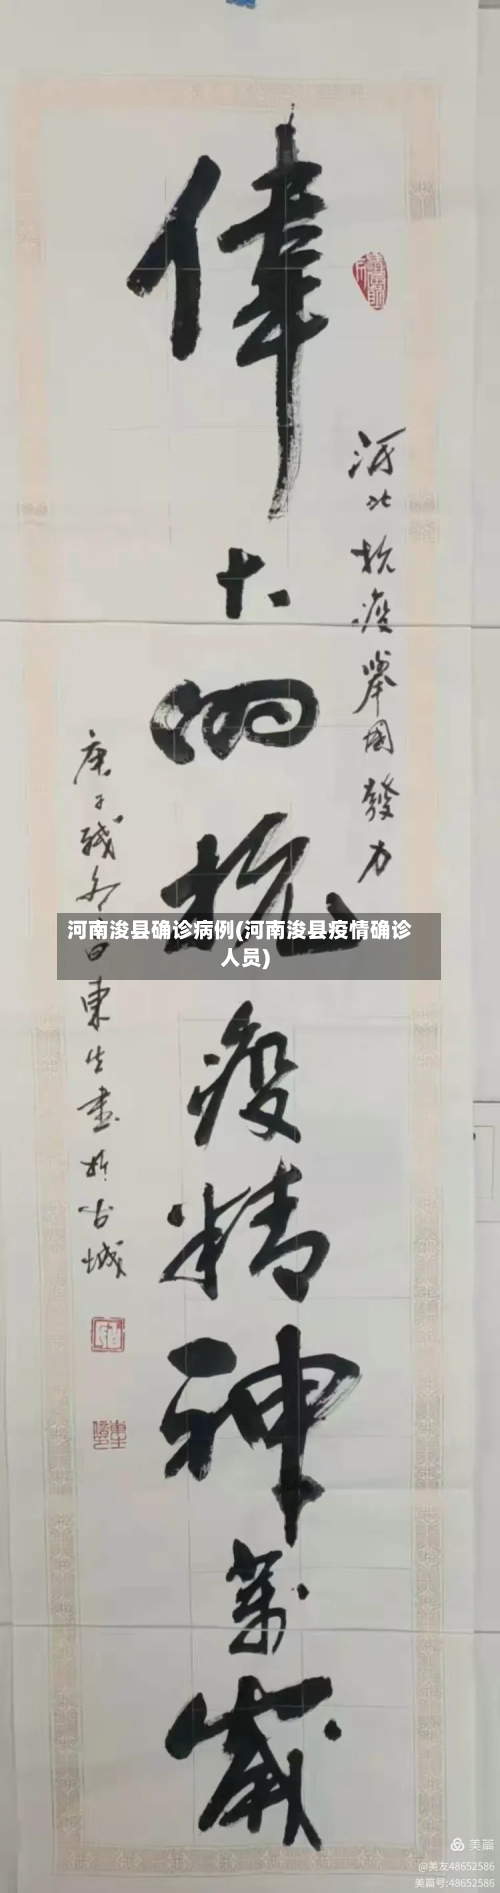 偉大的抗疫精神萬歲
河北抗疫舉國發力
庚子
東生書於古城
河南浚县确诊病例(河南浚县疫情确诊
人员)
美篇
@美友48652586
美篇号:48652586